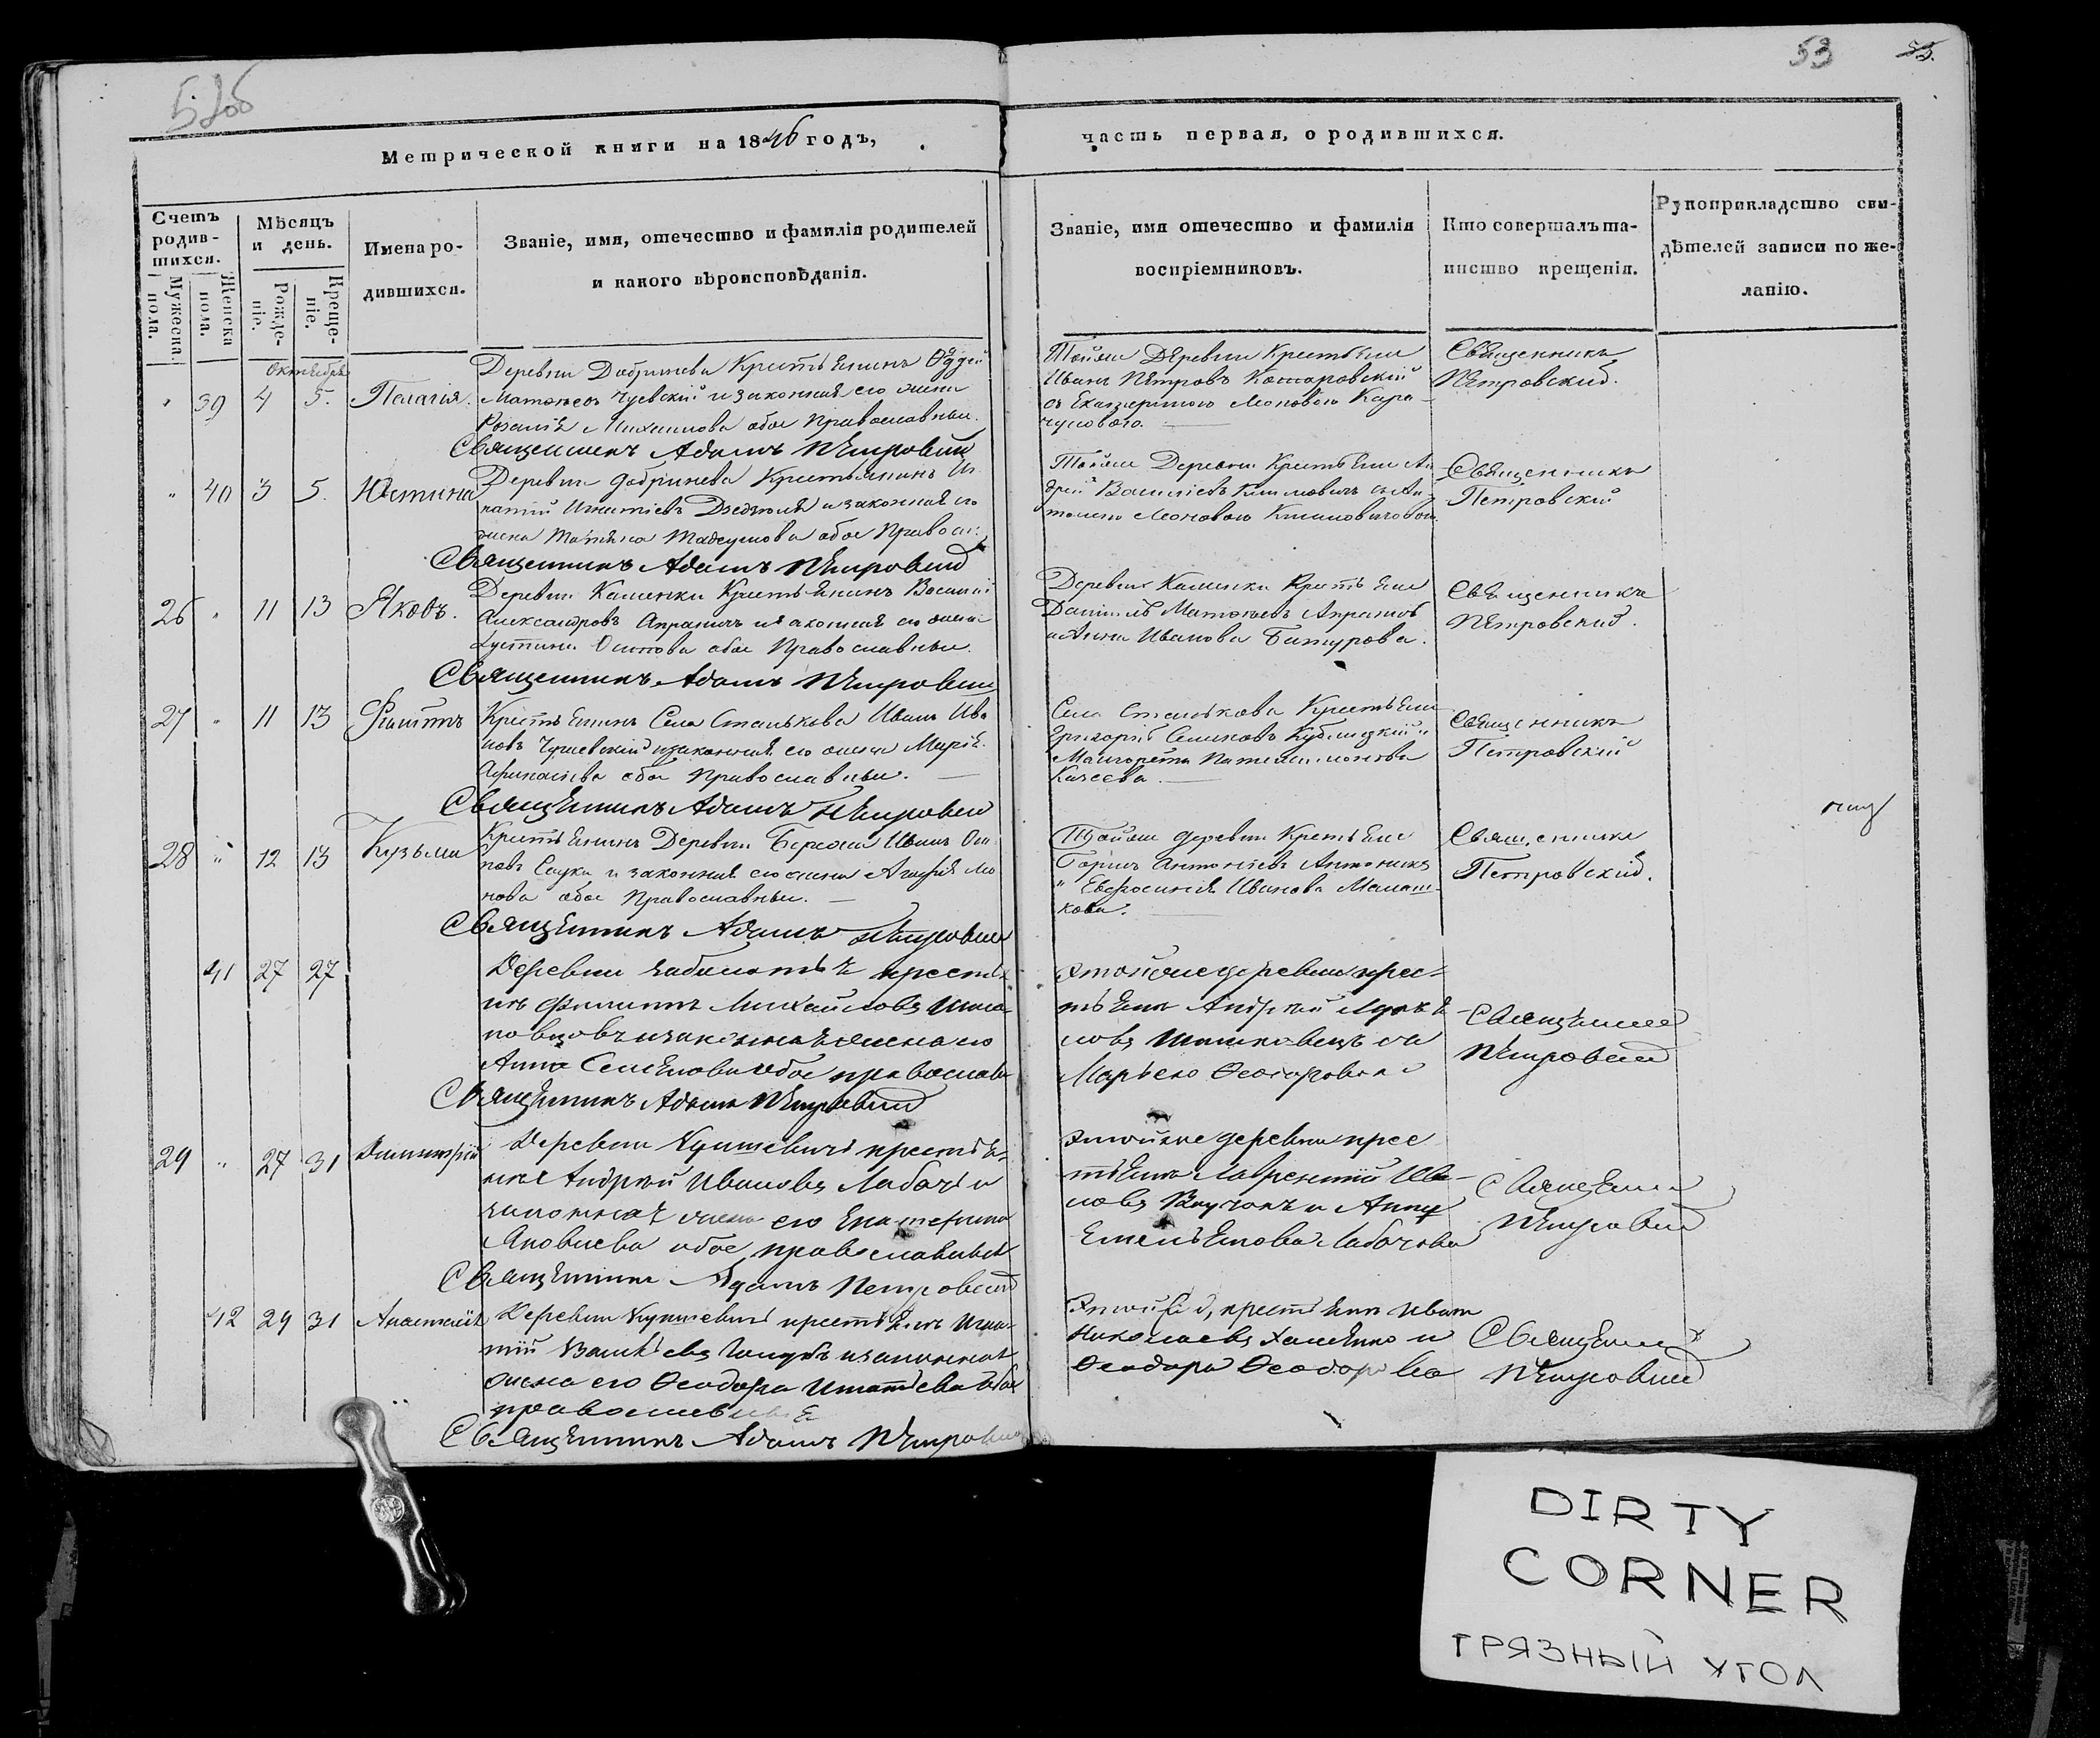 52об
53
Метрической книги на 1846 годъ,
часть первая, о родившихся.
Счетъ родив-шихся.
Мужеска пола.
Женска пола.
Мѣсяцъ и день.
Рожде-ніе.
Креще-ніе.
Имена ро-
дившихся.
Званіе, имя, отечество и фамилія родителей
и какого вѣроисповѣданія.
Званіе, имя отечество и фамилія
воспріемниковъ.
Кто совершалъ та-
инство крещенія.
Рукоприкладство сви-
дѣтелей записи по же-
ланію.
Октябрь
" 39 4 5. Пелагія.
Деревни Добринева Крестьянинъ
Матѳеевъ Чуевскій и законная его жена
Розалія Михаилова обое Православныи.
Священникъ Адамъ Петровскій
Тойже Деревни Крестьяне
Иванъ Петровъ Комаровскій
съ Екатериною Леоновою Кара-
чуновою.
Священникъ
Петровскій.
" 40 3 5. Юстина
Деревни Добринева Крестьянинъ Иг-
натій Игнатіевъ и законная его
жена Татіяна Тадеушова обое Правосл:
Священникъ Адамъ Петровскій
Тойже Деревни Крестьяне Ан-
дрей Василіевъ Климовичъ съ Ан-
Леоновою Климовичовою
Священникъ
Петровскій
26 " 11 13 Яковъ.
Деревни Каменки Крестьянинъ Василій
Александровъ Апрасичъ и законная его жена
Іустина Осипова обое Православныи.
Священникъ Адамъ Петровскій
Деревни Каменки Крестьяне
Даніилъ Матѳеевъ
и Анна Иванова Батурова.
Священникъ
Петровскій.
27 " 11 13 Филиппъ
Крестьянинъ Села Станькова Иванъ Ива-
новъ и законная его жена Марія
Афанасіева обое Православныи.
Священникъ Адамъ Петровскій
Села Станькова Крестьяне
Григорій Семеновъ Кублицкій и
Маргорета Пателимонова
Качеева.
Священникъ
Петровскій
28 " 12 13 Кузьма
Крестьянинъ Деревни Иванъ Оси-
повъ Саука и законная его жена Агафія Лео-
нова обое Православныи.
Священникъ Адамъ Петровскій
Тойже деревни Крестьяне
Антоніевъ Антоникъ
и Евфросинія Иванова Малаш-
кова.
Священникъ
Петровскій.
41 27 27
Деревни крестья-
нъ Филиппъ Михайловъ
и законная жена его
Анна Семенова обое православ
Священникъ Адамъ Петровскій
тойже деревни крес-
тьяне Андрей
съ
Марьею Ѳеодоровою
Священникъ
Петровскій
29 " 27 31 Димитрій
Деревни Кунцевичъ крестья-
нин Андрей Ивановъ Лабачъ и
законная жена его Екатерина
Яковлева обое православныя
Священникъ Адамъ Петровскій
тойже деревни крес
тьяне Лаврентій Ива-
новъ и Анна
Емельянова Лабачова
Священникъ
Петровскій
42 29 31 Анастасія
Деревни Кунцевичъ крестьянинъ Игна-
тій Василіевъ Голубъ и законная
жена его Ѳеодора Игнатіева обое
православныя
Священникъ Адамъ Петровскій
крестьяне Иванъ
Николаевъ и
Ѳеодора Ѳеодорова
Священникъ
Петровскій
DIRTY
CORNER
ГРЯЗНЫЙ УГОЛ